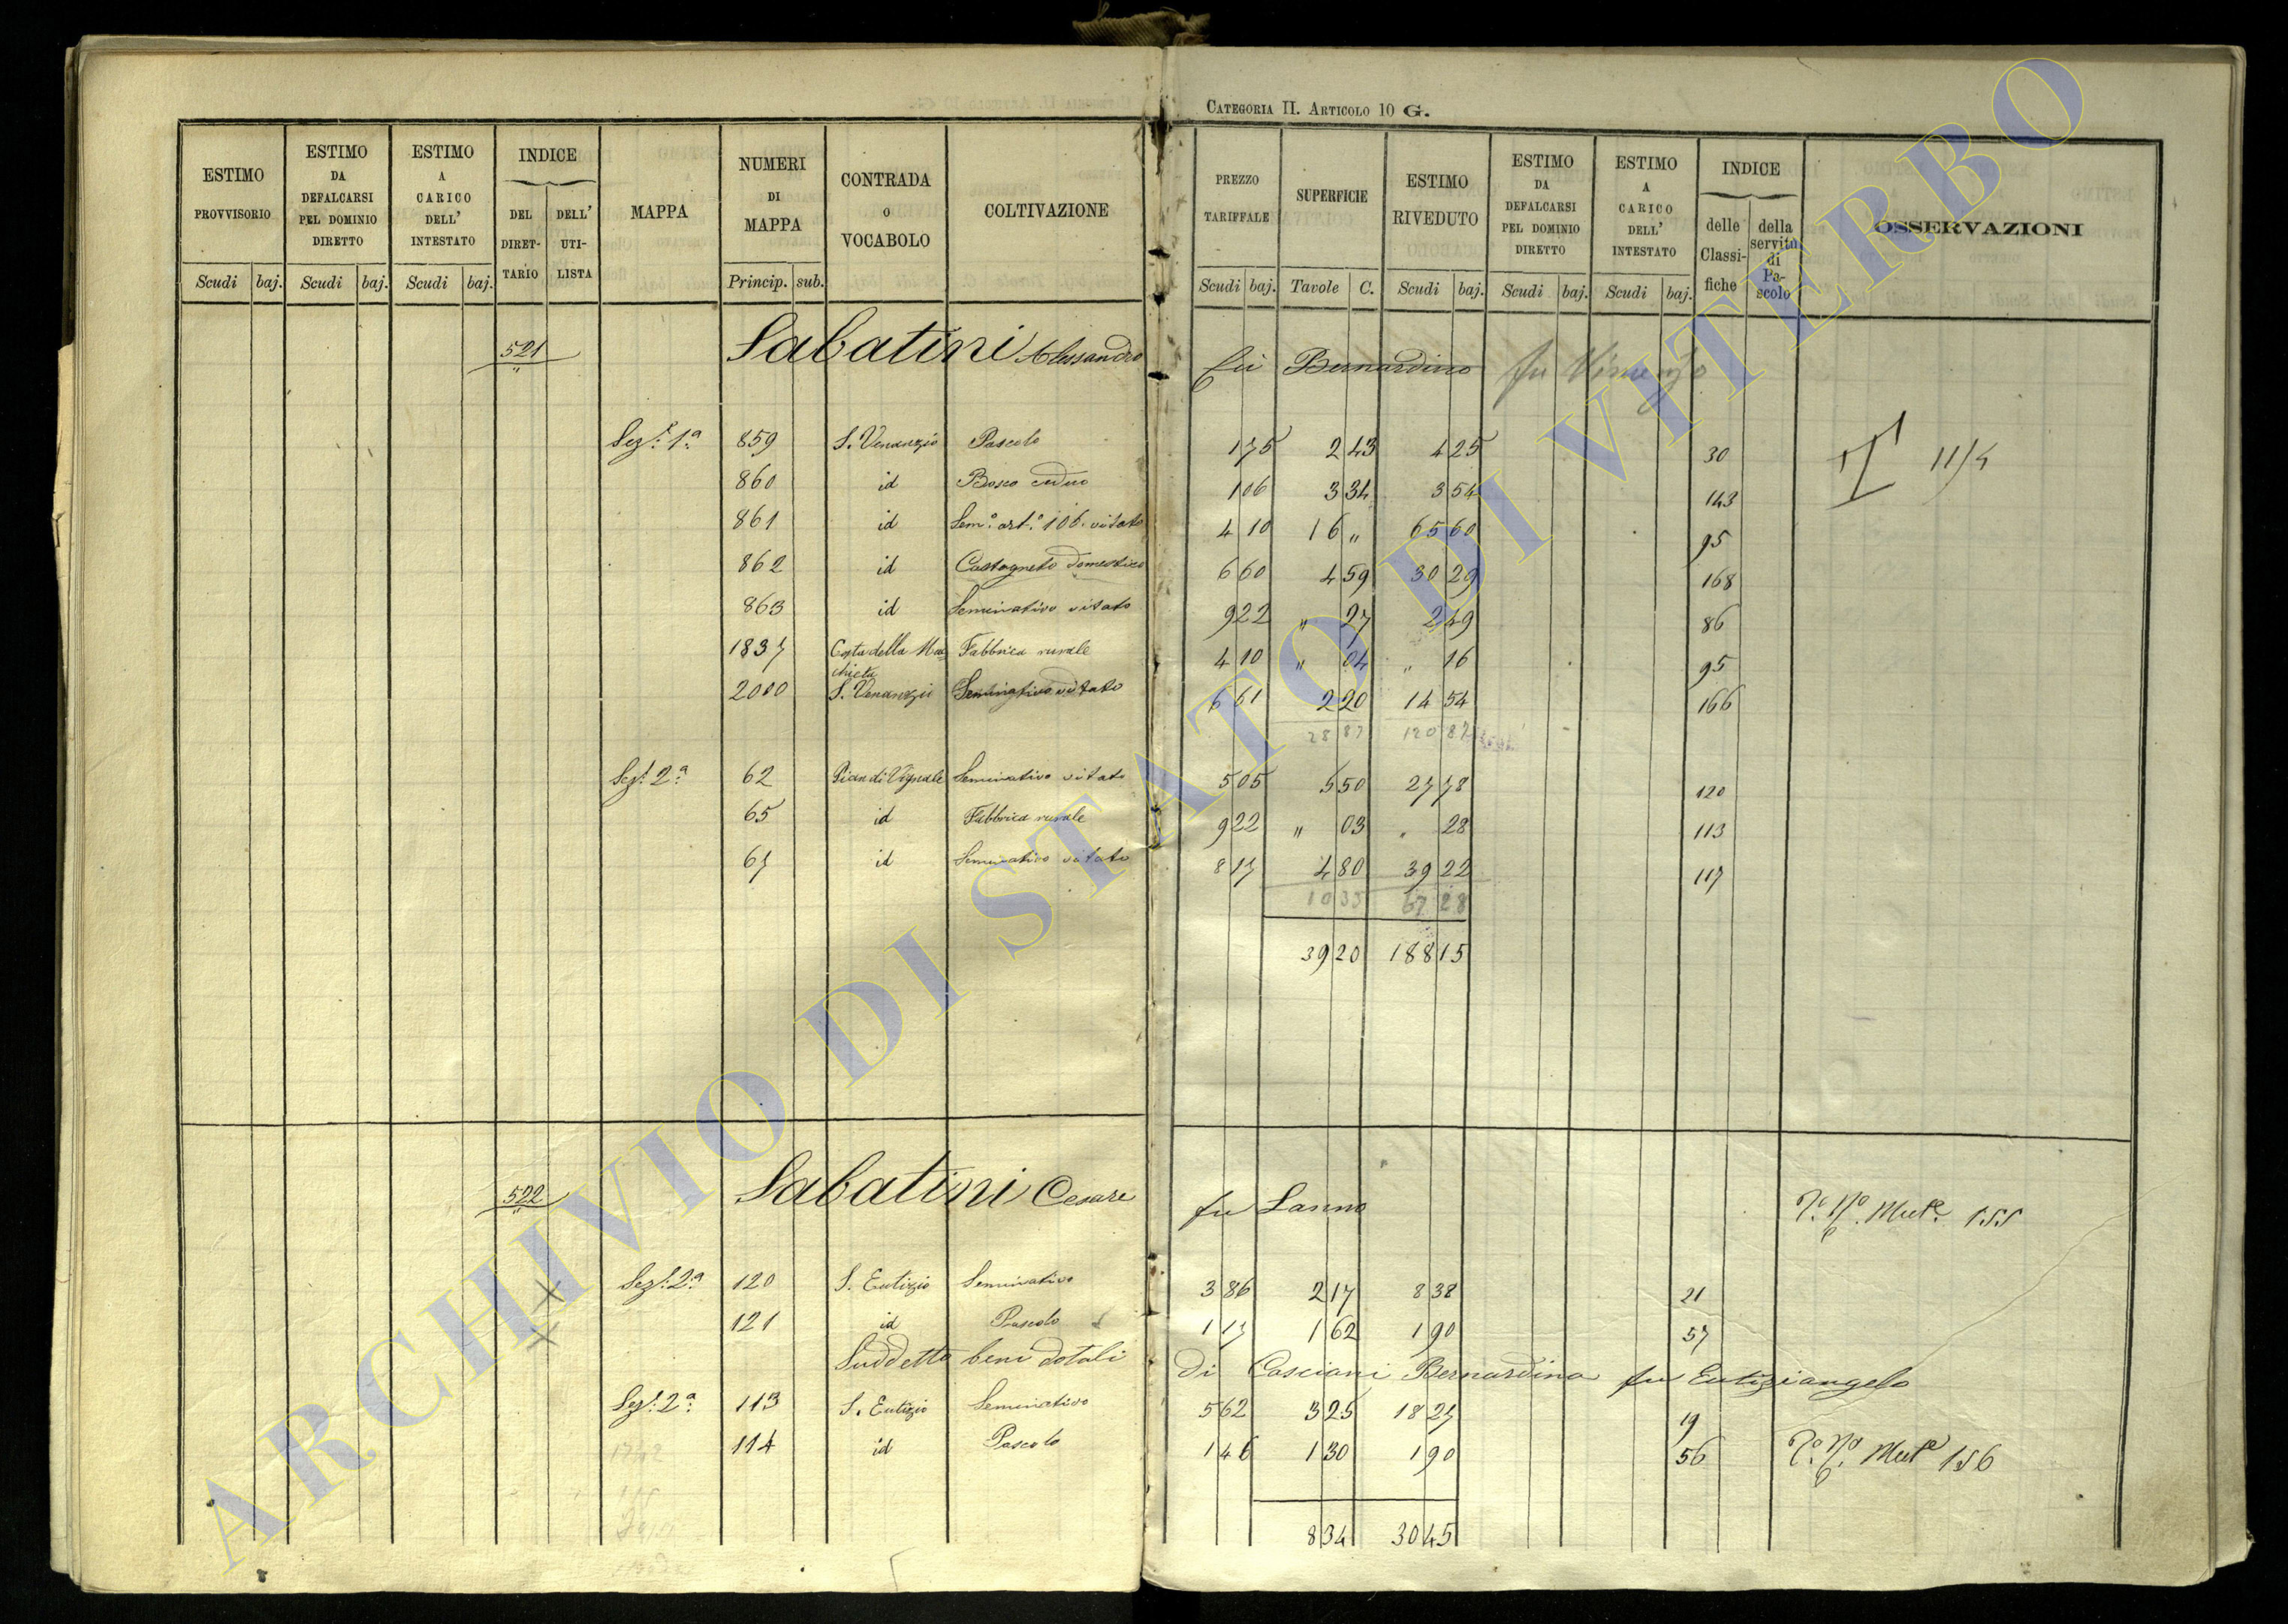 CATEGORIA II. ARTICOLO 10 G.
ESTIMO PROVVISORIO Scudi baj.
ESTIMO DA DEFALCARSI PEL DOMINIO DIRETTO Scudi baj.
ESTIMO A CARICO DELL' INTESTATO Scudi baj.
INDICE DEL DIRET-TARIO DELL' UTI-LISTA
MAPPA
NUMERI DI MAPPA Princip. sub.
CONTRADA O VOCABOLO
COLTIVAZIONE
PREZZO TARIFFALE Scudi baj.
SUPERFICIE Tavole C.
ESTIMO RIVEDUTO Scudi baj.
ESTIMO DA DEFALCARSI PEL DOMINIO DIRETTO Scudi baj.
ESTIMO A CARICO DELL' INTESTATO Scudi baj.
INDICE delle Classi-fiche della servitù di Pa-scolo
OSSERVAZIONI
521 Sabatini Alessandro fù Bernardino fu Vincenzo
Sez.e 1.a 859 S. Venanzio Pascolo 1 75 2 43 4 25 30
11/4
860 id Bosco ceduo 1 06 3 34 3 54 143
861 id Sem.o art.o 106. vitato 4 10 16 " 65 60 95
862 id Castagneto domestico 6 60 4 59 30 29 168
863 id Seminativo vitato 9 22 " 27 2 49 86
1837 Costa della Macchieta Fabbrica rurale 4 10 " 04 " 16 95
2000 S. Venanzio Seminativo vitato 6 61 2 20 14 54 166
28 87 120 87
Sez.e 2.a 62 Pian di Vignale Seminativo vitato 5 05 5 50 27 78 120
65 id Fabbrica rurale 9 22 " 03 " 28 113
67 id Seminativo vitato 8 17 4 80 39 22 117
10 33 67 28
39 20 188 15
522 Sabatini Cesare fu Sanno
Mut.e 155
Sez.e 2.a 120 S. Eutizio Seminativo 3 86 2 17 8 38 21
121 id Pascolo 1 17 1 62 1 90 57
Suddetto beni dotali di Casciani Bernardina fu Eutiziangelo
Sez.e 2.a 113 S. Eutizio Seminativo 5 62 3 25 18 27 19
114 id Pascolo 1 46 1 30 1 90 56
Mut.e 156
8 34 30 45
ARCHIVIO DI STATO DI VITERBO